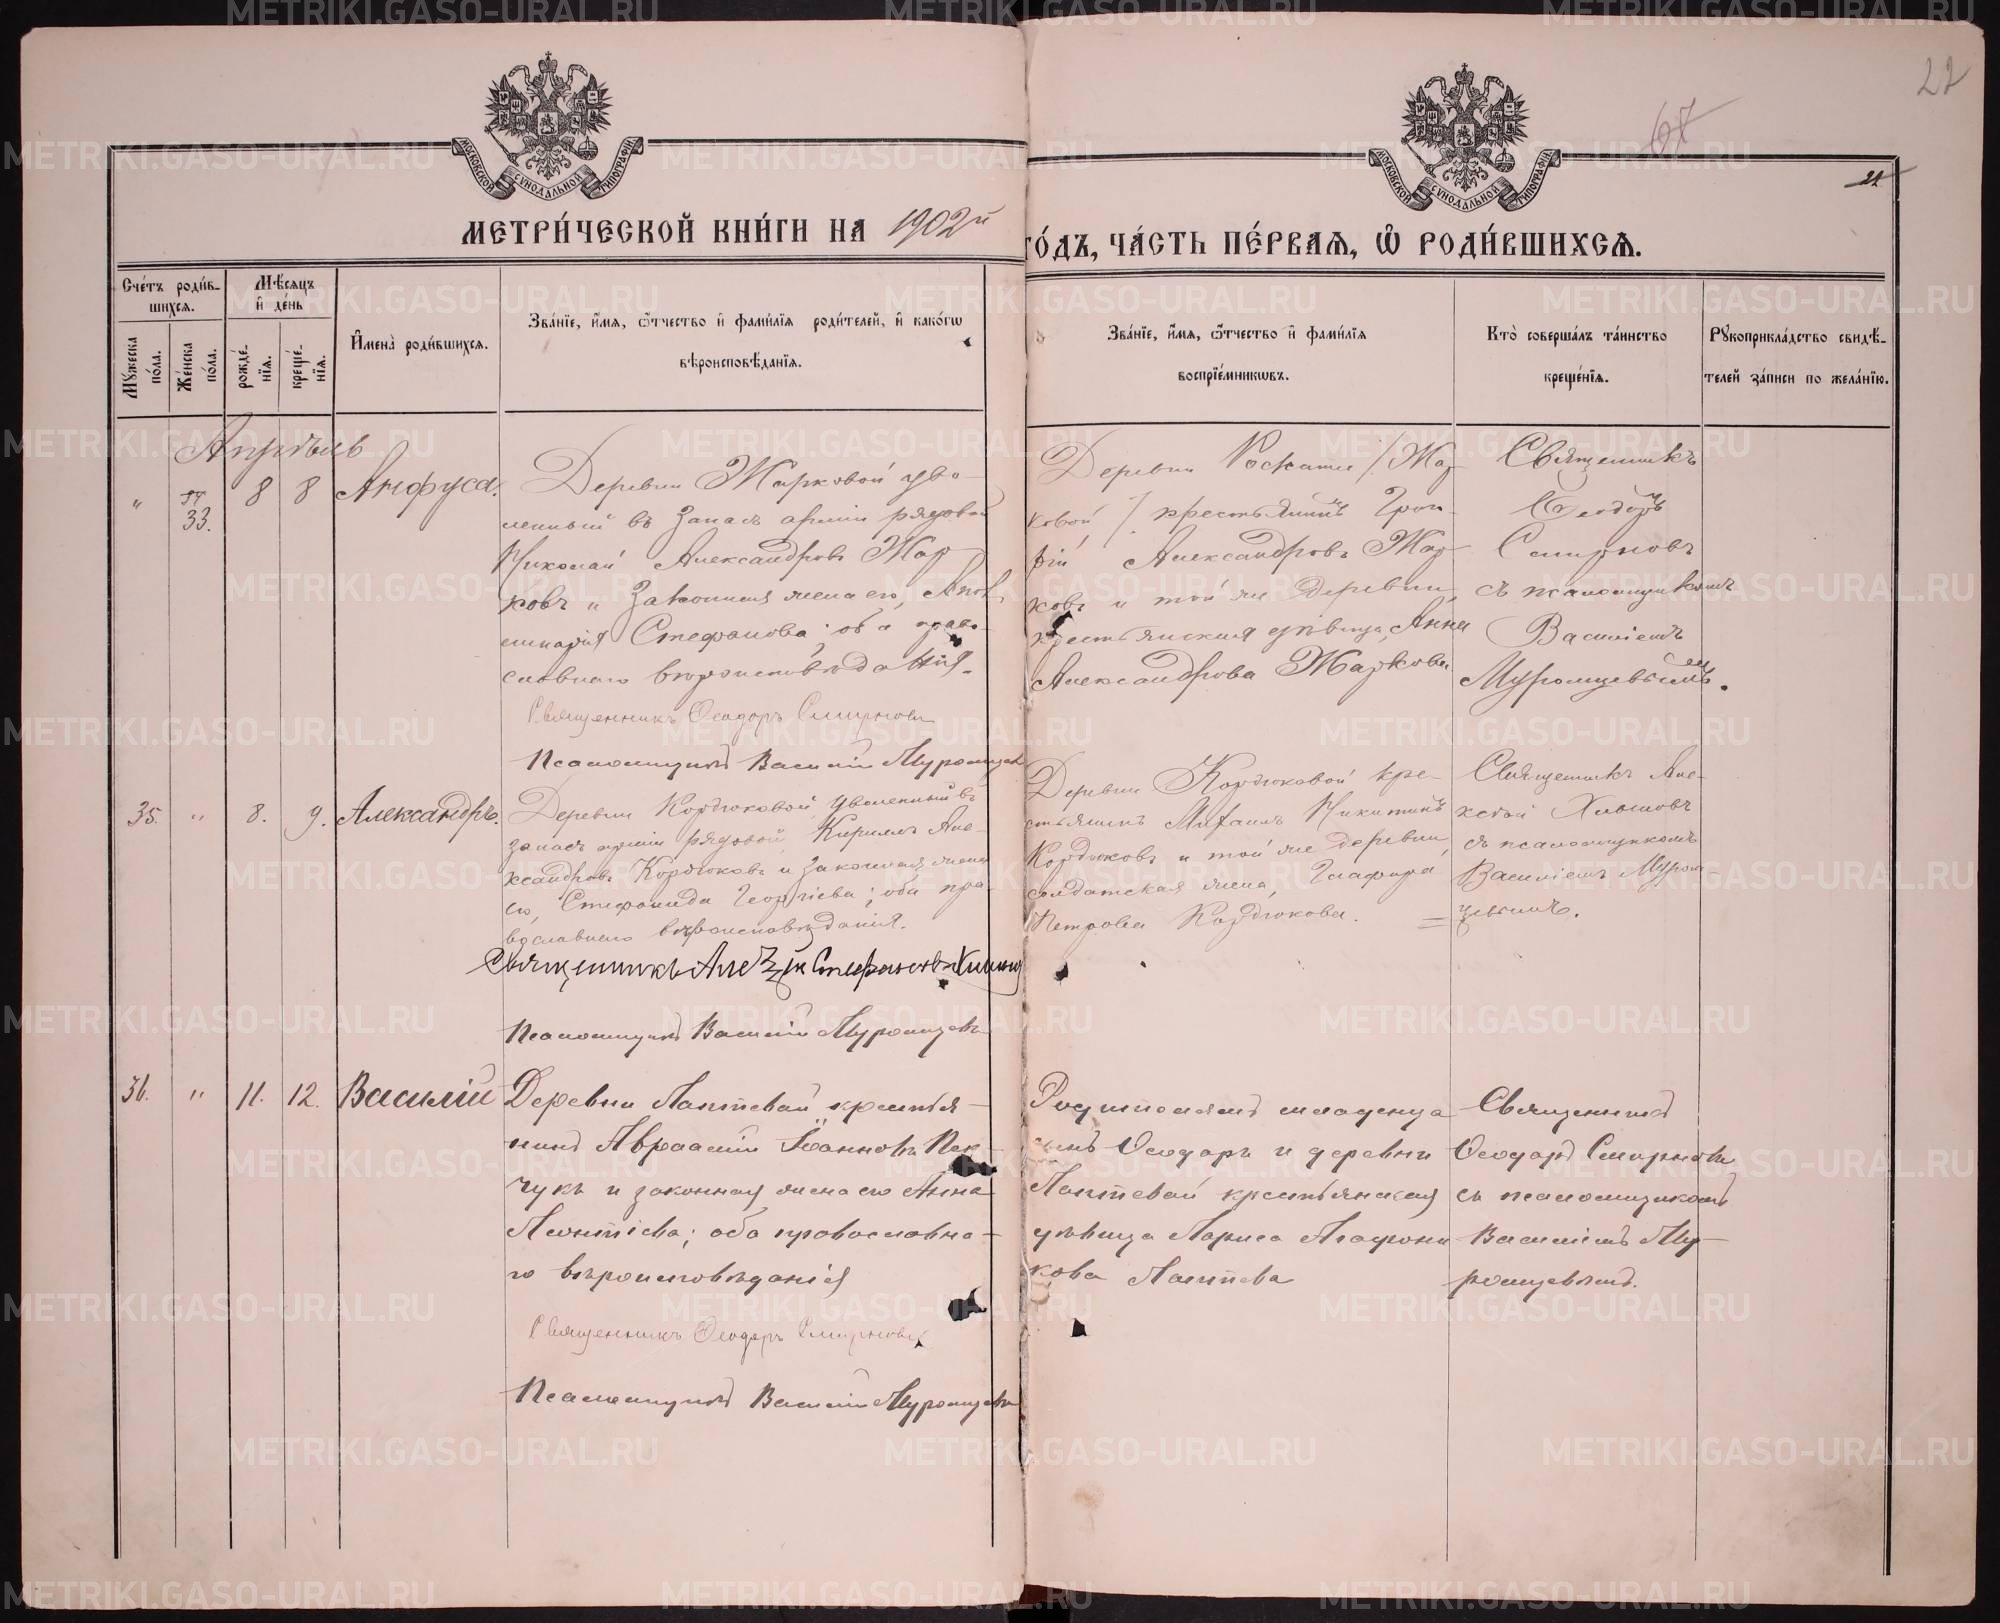 22
67
21
МОСКОВСКОЙ СѴНОДАЛЬНОЙ ТИПОГРАФІИ
МОСКОВСКОЙ СѴНОДАЛЬНОЙ ТИПОГРАФІИ
МЕТРИ́ЧЕСКОЙ КНИ́ГИ НА 1902й
ГО́ДЪ, ЧА́СТЬ ПЕ́РВАЯ, Ѡ РОДИ́ВШИХСЯ.
Сче́тъ роди́в-
шихся.
Мѣ́сяцъ
и҆ де́нь
Мꙋ́жеска по́ла.
Же́нска по́ла.
рожде́-
нїя.
креще́-
нїя.
И҆мена̀ роди́вшихся.
Зва́нїе, и҆́мя, ѻ҆́тчество и҆ фами́лїя роди́телей, и҆ како́гѡ
вѣроисповѣ́данїя.
Зва́нїе, и҆́мя, ѻ҆́тчество и҆ фами́лїя
воспрїе́мникѡвъ.
Кто̀ соверша́лъ та́инство
креще́нїя.
Рꙋкоприкла́дство свидѣ́-
телей за́писи по жела́нїю.
Апрѣль
" 34 33. 8 8 Анфуса.
Деревни Жарковой уво-
ленный въ запасъ арміи рядовой
Николай Александровъ Жар
ковъ и законная жена его, Апол
линарія Стефанова; оба право-
славнаго вѣроисповѣданія.
Священникъ Ѳеодоръ Смирновъ
Псаломщикъ Василій Муромцевъ
Деревни Роскати /Жар
ковой,/ крестьянинъ
Александровъ Жар-
ковъ и той же деревни,
крестьянская дѣвица, Анна
Александрова Жаркова
Священникъ
Ѳеодоръ
Смирновъ
съ псаломщикомъ
Василіемъ
Муромцевымъ.
35. " 8. 9. Александръ.
Деревни Кордюковой, уволенный въ
запасъ арміи рядовой, Кириллъ Але-
ксандровъ Кордюковъ и законная жена
его, Стефанида Георгіева; оба пра-
вославнаго вѣроисповѣданія.
Священникъ Алексій Стефановъ Хишинъ
Псаломщикъ Василій Муромцевъ
Деревни Кордюковой кре-
стьянинъ Михаилъ Никитинъ
Кордюковъ и той же деревни,
солдатская жена, Глафира
Петрова Кордюкова. =
Священникъ Але-
ксѣй
съ псаломщикомъ
Василіемъ Муром-
цевымъ.
36. " 11. 12. Василій
Деревни Лаптевой крестья-
нинъ Авраамій Іоанновъ
и законная жена его Анна
Леонтіева; оба православна-
го вѣроисповѣданія
Священникъ Ѳеодоръ Смирновъ
Псаломщикъ Василій Муромцевъ
младенца
сынъ Ѳеодоръ и деревни
Лаптевой крестьянская
дѣвица Лариса Агафони
кова Лаптева
Священникъ
Ѳеодоръ Смирновъ
съ псаломщикомъ
Василіемъ Му-
ромцевымъ.
METRIKI.GASO-URAL.RU